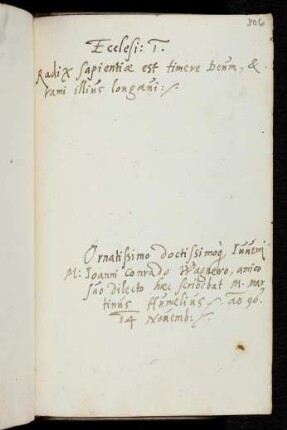 306
Ecclesi: 1.
Radix sapientiæ est timere deum, &
rami illius longævi:
Ornatissimo doctissimoq̃ Iuveni
M: Ioanni Conrado Wagnero, amico
suo dilecto hæc scribebat M. Mar
tinus Humelius ao 96.
14 Novemb: